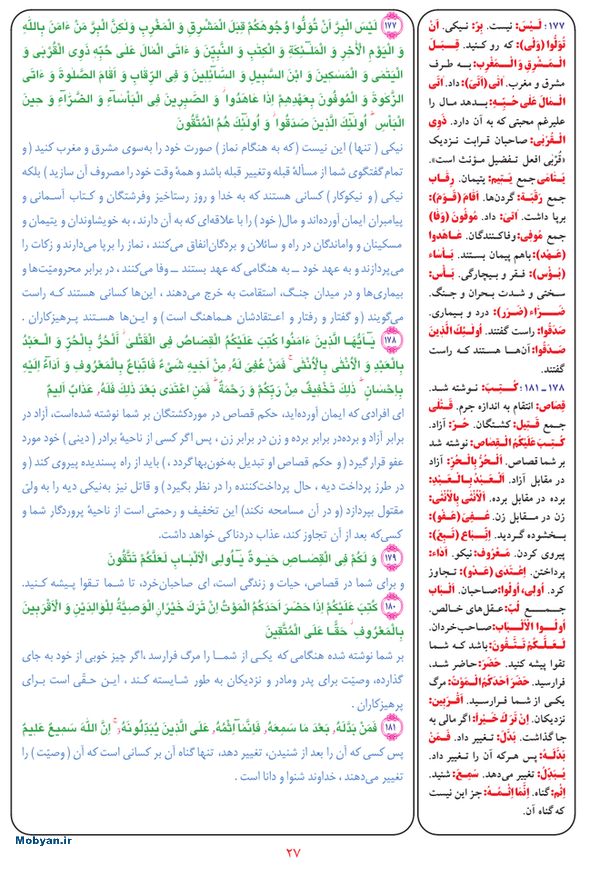 ۱۷۷: لَیْسَ: نیست. بِرّ: نیکی. اَنْ
تُوَلُّوا (وَلی): که رو کنید. قِبَلَ
الْمَشْرِقِ وَ الْمَغْرِب: به طرف
مشرق و مغرب. آتَی (اَتَیَ): داد. آتَی
الْمالَ عَلی حُبِّهِ: بدهد مال را
علیرغم محبتی که به آن دارد. ذَوِی
الْقُرْبی: صاحبان قرابت نزدیک
«قُرْبی افعل تفضیل مؤنث است».
یَتامی جمع یَتیم: یتیمان. رِقاب
جمع رَقَبَة: گردن‌ها. اَقامَ (قَوَمَ):
برپا داشت. آتَیَ: داد. مُوفُونَ (وَفا)
جمع مُوفِی: وفاکنندگان. عاهَدوا
(عَهِدَ): باهم پیمان بستند. بَأْساء
(بُؤْس): فقر و بیچارگی. بَأْس:
سختی و شدت بحران و جنگ.
ضَرّاء (ضَرَر): درد و بیماری.
صَدَقُوا: راست گفتند. اُولئِكَ الَّذینَ
صَدَقُوا: آن‌ها هستند که راست
گفتند.
۱۷۸ ـ ۱۸۱: کُتِبَ: نوشته شد.
قِصاص: انتقام به اندازه جرم. قَتْلی
جمع قَتیل: کشتگان. حُرّ: آزاد.
کُتِبَ عَلَیْکُمُ الْقِصاص: نوشته شد
بر شما قصاص. اَلْحُرُّ بِالْحُرّ: آزاد
در مقابل آزاد. اَلْعَبْدُ بِالْعَبْد:
برده در مقابل برده. اَلْاُنْثی بِالْاُنْثی:
زن در مقابل زن. عُفِیَ (عَفَو):
بخشوده گردید. اِتِّباع (تَبِعَ):
پیروی کردن. مَعْرُوف: نیکو. اَداء:
پرداختن. اِعْتَدی (عَدَو): تجاوز
کرد. اُولِی، اُولُوا: صاحبان. اَلْباب
جمع لُبّ: عقل‌های خالص.
اُولُوا الْاَلْباب: صاحب‌خردان.
لَعَلَّکُمْ تَتَّقُونَ: باشد که شما
تقوا پیشه کنید. حَضَرَ: حاضر شد،
فرارسید. حَضَرَ اَحَدَکُمُ الْمَوْتُ: مرگ
یکی از شما فرارسید. اَقْرَبین:
نزدیکان. اِنْ تَرَكَ خَیْراً: اگر مالی به
جا گذاشت. بَدَّلَ: تغییر داد. فَمَنْ
بَدَّلَهُ: پس هرکه آن را تغییر داد.
یُبَدِّلُ: تغییر می‌دهد. سَمِعَ: شنید.
اِثْم: گناه. اِنَّما اِثْمُهُ: جز این نیست
که گناه آن.
۱۷۷ لَیْسَ الْبِرَّ اَنْ تُوَلُّوا وُجُوهَکُمْ قِبَلَ الْمَشْرِقِ وَ الْمَغْرِبِ وَلٰکِنَّ الْبِرَّ مَنْ ءَامَنَ بِاللّٰهِ
وَ الْیَوْمِ الْاٰخِرِ وَ الْمَلٰٓئِکَةِ وَ الْکِتٰبِ وَ النَّبِیّٖنَ وَ ءَاتَی الْمَالَ عَلٰی حُبِّهٖ ذَوِی الْقُرْبٰی وَ
الْیَتٰمٰی وَ الْمَسٰکِینَ وَ ابْنَ السَّبِیلِ وَ السَّآئِلِینَ وَ فِی الرِّقَابِ وَ اَقَامَ الصَّلٰوةَ وَ ءَاتَی
الزَّکٰوةَ وَ الْمُوفُونَ بِعَهْدِهِمْ اِذَا عَاهَدُوا وَ الصّٰبِرِینَ فِی الْبَأْسَآءِ وَ الضَّرَّآءِ وَ حِینَ
الْبَأْسِ اُولٰٓئِكَ الَّذِینَ صَدَقُوا وَ اُولٰٓئِكَ هُمُ الْمُتَّقُونَ
نیکی ( تنها) این نیست (که به هنگام نماز ) صورت خود را به‌سوی مشرق و مغرب کنید ( و
تمام گفتگوی شما از مسألهٔ قبله وتغییر قبله باشد و همهٔ وقت خود را مصروف آن سازید ) بلکه
نیکی ( و نیکوکار) کسانی هستند که به خدا و روز رستاخیز وفرشتگان و کتاب آسمانی و
پیامبران ایمان آورده‌اند و مال( خود ) را با علاقه‌ای که به آن دارند ، به خویشاوندان و یتیمان و
مسکینان و واماندگان در راه و سائلان و بردگان‌انفاق می‌کنند ، نماز را برپا می‌دارند و زکات را
می‌پردازند و به عهد خود ــ به هنگامی که عهد بستند ــ وفا می‌کنند ، در برابر محرومیّت‌ها و
بیماری‌ها و در میدان جنگ، استقامت به خرج می‌دهند ، این‌ها کسانی هستند کـه راست
می‌گویند ( و گفتار و رفتار و اعتقادشان هماهنگ است ) و این‌ها هستند پرهیزکاران .
۱۷۸ یٰٓاَیُّهَا الَّذِینَ ءَامَنُوا کُتِبَ عَلَیْکُمُ الْقِصَاصُ فِی الْقَتْلٰی اَلْحُرُّ بِالْحُرِّ وَ الْعَبْدُ
بِالْعَبْدِ وَ الْاُنْثٰی بِالْاُنْثٰی فَمَنْ عُفِیَ لَهٗ مِنْ اَخِیهِ شَیْءٌ فَاتِّبَاعٌ بِالْمَعْرُوفِ وَ اَدَآءٌ اِلَیْهِ
بِاِحْسَانٍ ذٰلِكَ تَخْفِیفٌ مِنْ رَبِّکُمْ وَ رَحْمَةٌ فَمَنِ اعْتَدٰی بَعْدَ ذٰلِكَ فَلَهٗ عَذَابٌ اَلِیمٌ
ای افرادی که ایمان آورده‌اید، حکم قصاص در موردکشتگان بر شما نوشته شده‌است، آزاد در
برابر آزاد و برده‌در برابر برده و زن در برابر زن ، پس اگر کسی از ناحیهٔ برادر ( دینی ) خود مورد
عفو قرار گیرد ( و حکم قصاص او تبدیل به‌خون‌بها گردد ، ) باید از راه پسندیده پیروی کند ( و
در طرز پرداخت دیه ، حال پرداخت‌کننده را در نظر بگیرد ) و قاتل نیز به‌نیکی دیه را به ولیّ
مقتول بپردازد (و در آن مسامحه نکند) این تخفیف و رحمتی است از ناحیهٔ پروردگار شما و
کسی‌که بعد از آن تجاوز کند، عذاب دردناکی خواهد داشت.
۱۷۹ وَ لَکُمْ فِی الْقِصَاصِ حَیٰوةٌ یٰٓاُولِی الْاَلْبَابِ لَعَلَّکُمْ تَتَّقُونَ
و برای شما در قصاص، حیات و زندگی است، ای صاحبان‌خرد، تا شما تـقوا پـیشه کنید.
۱۸۰ کُتِبَ عَلَیْکُمْ اِذَا حَضَرَ اَحَدَکُمُ الْمَوْتُ اِنْ تَرَكَ خَیْرًا الْوَصِیَّةُ لِلْوَالِدَیْنِ وَ الْاَقْرَبِینَ
بِالْمَعْرُوفِ حَقًّا عَلَی الْمُتَّقِینَ
بر شما نوشته شده هنگامی که یکی از شما را مرگ فرارسد ،اگر چیز خوبی از خود به جای
گذارده، وصیّت برای پدر ومادر و نزدیکان به طور شایسته کند ، این حقّی است بـرای
پرهیزکاران .
۱۸۱ فَمَنْ بَدَّلَهٗ بَعْدَ مَا سَمِعَهٗ فَاِنَّمَآ اِثْمُهٗ عَلَی الَّذِینَ یُبَدِّلُونَهٗ اِنَّ اللّٰهَ سَمِیعٌ عَلِیمٌ
پس کسی که آن را بعد از شنیدن، تغییر دهد، تنها گناه آن بر کسانی است که آن ( وصیّت ) را
تغییر می‌دهند ، خداوند شنوا و دانا است .
Mobyan.ir
۲۷